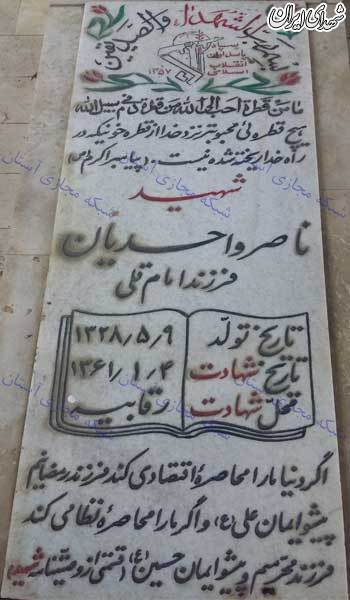 شهدای ایران
بسم رب الشهداء والصدیقین
سپاه
پاسداران
انقلاب
اسلامی
۱۳۵۷
ما من قطرة احب الی الله من قطرة دم فی سبیل الله
هیچ قطره ئی محبوبتر نزد خدا از قطره خونیکه در
راه خدا ریخته شده نیست. (پیامبر اکرم ص)
شهید
ناصر واحدیان
فرزند امام قلی
تاریخ تولد ۱۳۲۸/۵/۹
تاریخ شهادت ۱۳۶۱/۱/۴
محل شهادت رقابیه
اگر دنیا ما را محاصره اقتصادی کند فرزند رمضانیم
پیشوایمان علی (ع) واگر ما را محاصره نظامی کند
فرزند محرمیم و پیشوایمان حسین (ع) (قسمتی از وصیتنامه شهید)
شبکه مجازی آستان